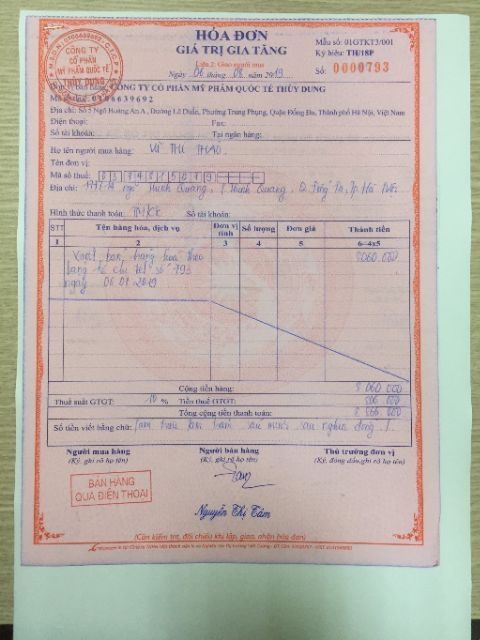 HÓA ĐƠN
GIÁ TRỊ GIA TĂNG
Liên 2: Giao người mua
Ngày 06 tháng 08 năm 2019
Mẫu số: 01GTKT3/001
Ký hiệu: TH/18P
Số: 0000793
CÔNG TY
CỔ PHẦN
MỸ PHẨM QUỐC TẾ
THÙY DUNG
Đơn vị bán hàng: CÔNG TY CỔ PHẦN MỸ PHẨM QUỐC TẾ THÙY DUNG
Mã số thuế: 0106639692
Địa chỉ: Số 5 Ngõ Hoàng An A, Đường Lê Duẩn, Phường Trung Phụng, Quận Đống Đa, Thành phố Hà Nội, Việt Nam
Điện thoại: Fax:
Số tài khoản: Tại ngân hàng:
Họ tên người mua hàng: VŨ THU THẢO
Tên đơn vị:
Mã số thuế:
Địa chỉ: ngõ Thịnh Quang, P. Thịnh Quang, Q. Đống Đa, Tp Hà Nội
Hình thức thanh toán: TM/CK Số tài khoản:
STT Tên hàng hóa, dịch vụ Đơn vị tính Số lượng Đơn giá Thành tiền
1 2 3 4 5 6=4x5
Xuất bán hàng hóa theo 8 060 000
bảng kê chi tiết số 793
ngày 06.08.2019
Cộng tiền hàng: 8 060 000
Thuế suất GTGT: 10 % Tiền thuế GTGT: 806 000
Tổng cộng tiền thanh toán: 8 866 000
Số tiền viết bằng chữ: Tám triệu tám trăm sáu mươi sáu nghìn đồng ./.
Người mua hàng Người bán hàng Thủ trưởng đơn vị
(Ký, ghi rõ họ tên) (Ký, ghi rõ họ tên) (Ký, đóng dấu, ghi rõ họ tên)
BÁN HÀNG
QUA ĐIỆN THOẠI
Nguyễn Thị Tám
(Cần kiểm tra, đối chiếu khi lập, giao, nhận hóa đơn)